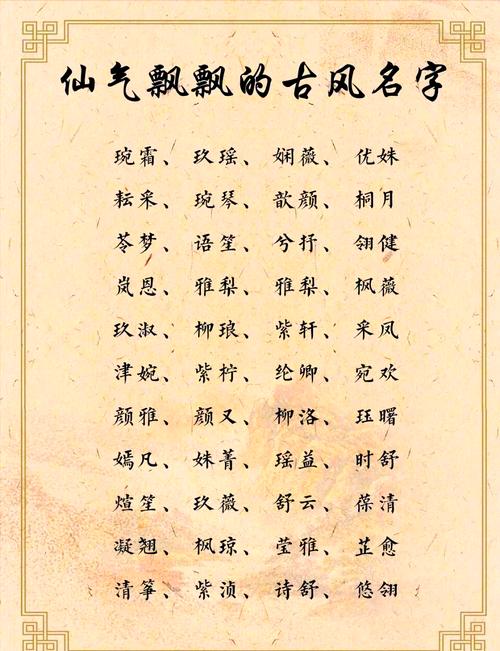 仙气飘飘的古风名字
琬霜、玖瑶、娴薇、优姝
耘采、琬琴、歆颜、桐月
苓梦、语笙、兮抒、翎健
岚恩、雅梨、雅梨、枫薇
玖淑、柳琅、紫轩、采凤
津婉、紫柠、纶卿、宛欢
颜雅、颜又、柳洛、珏曙
嫣凡、姝菁、瑶益、时舒
煊笙、玖薇、舒云、葆清
凝翘、枫琼、莹雅、芷愈
清筝、紫浈、诗舒、悠翎